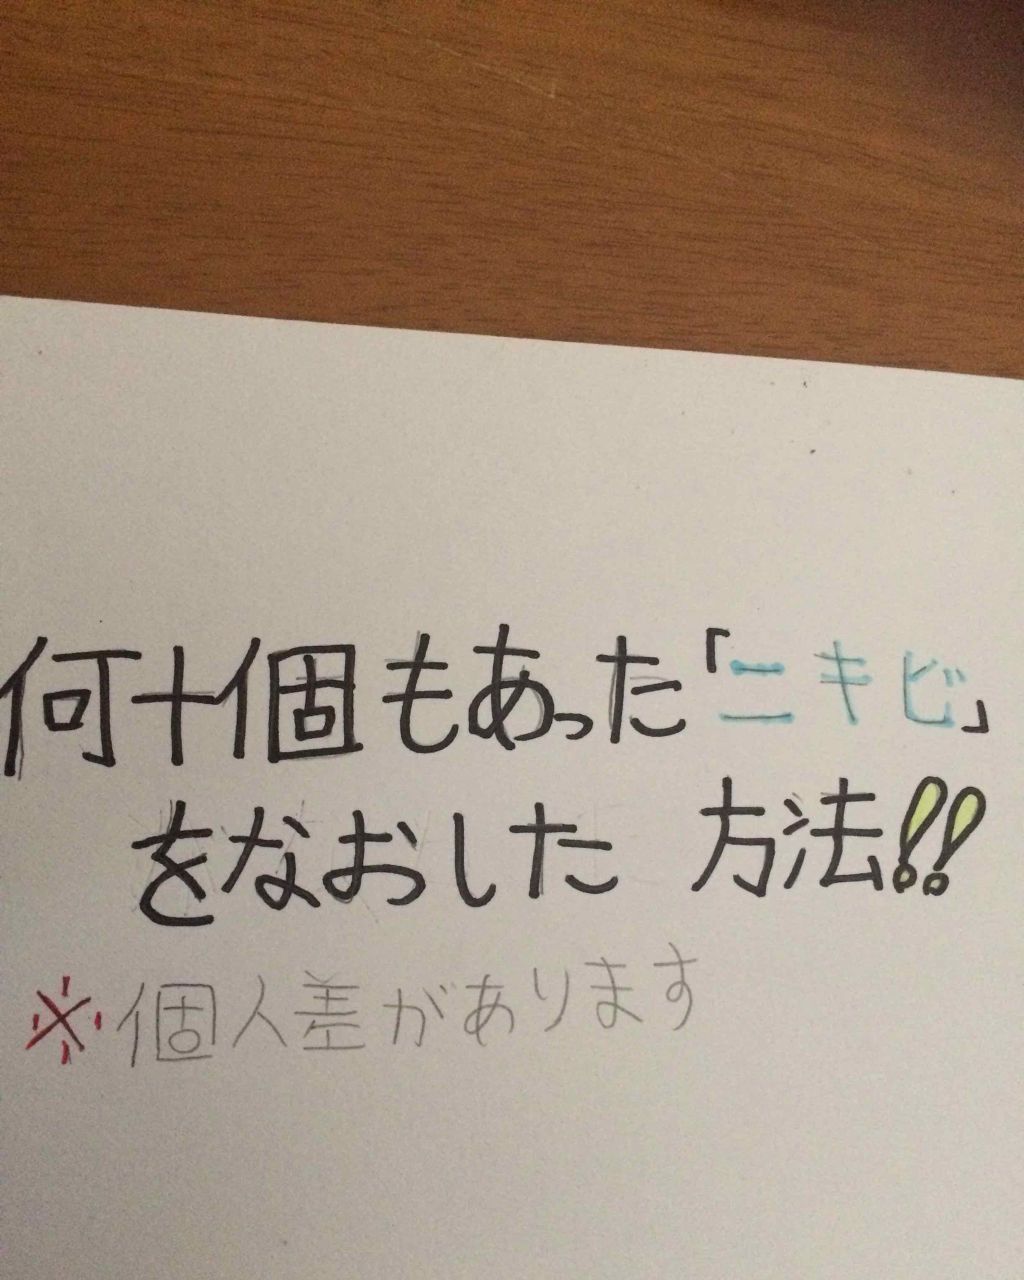 何十個もあった「ニキビ」
をなおした 方法!!
※個人差があります